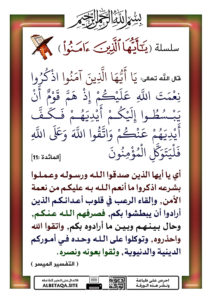 بسم الله الرحمن الرحيم
سلسلة ( يَٰٓأَيُّهَا ٱلَّذِينَ ءَامَنُوا۟ )
قال الله تعالى: يَا أَيُّهَا الَّذِينَ آمَنُوا اذْكُرُوا
نِعْمَتَ اللَّهِ عَلَيْكُمْ إِذْ هَمَّ قَوْمٌ أَنْ
يَبْسُطُوا إِلَيْكُمْ أَيْدِيَهُمْ فَكَفَّ
أَيْدِيَهُمْ عَنْكُمْ وَاتَّقُوا اللَّهَ وَعَلَى اللَّهِ
فَلْيَتَوَكَّلِ الْمُؤْمِنُونَ
[المائدة :11]
أي يا أيها الذين صدقوا الله ورسوله وعملوا
بشرعه اذكروا ما أنعم الله به عليكم من نعمة
الأمن، وإلقاء الرعب في قلوب أعدائكم الذين
أرادوا أن يبطشوا بكم، فصرفهم الله عنكم،
وحال بينهم وبين ما أرادوه بكم. واتقوا الله
واحذروه، وتوكلوا على الله وحده في أموركم
الدينية والدنيوية، وثقوا بعونه ونصره.
( التفسير الميسر )
ALBETAQA.SITE
احرص على طباعة
ونشر هذه الورقة